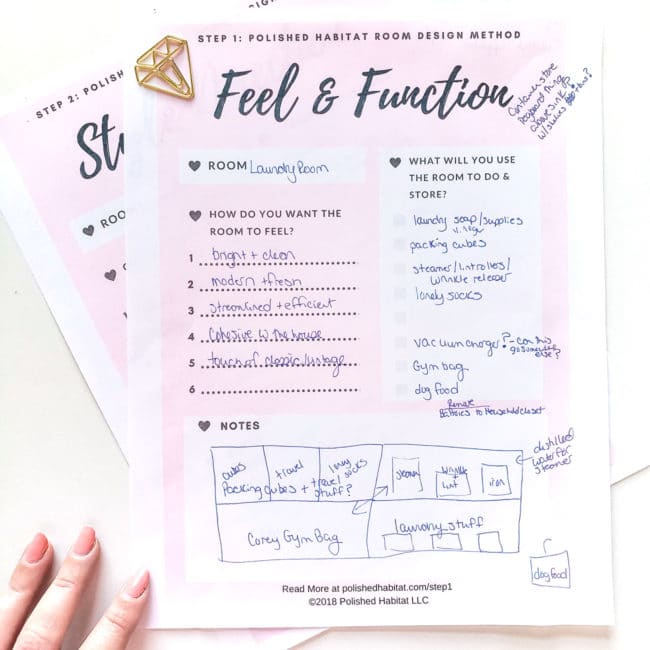 STEP 1: POLISHED HABITAT ROOM DESIGN METHOD
Feel & Function
Container store
pegboard thing
above sink?
w/shelves
STEP 2: POLISH
St
ROO
ROOM Laundry Room
HOW DO YOU WANT THE
ROOM TO FEEL?
1 bright + clean
2 modern + fresh
3 streamlined + efficient
4 Cohesive w the house
5 touch of classic/vintage
6
WHAT WILL YOU USE
THE ROOM TO DO &
STORE?
laundry soap/supplies
vinegar
packing cubes
steamer/lintrollers/
wrinkle releaser
lonely socks
vacuum charger? - can this
go somewhere
else?
Gym bag
dog food
Remove
Batteries to Household closet
NOTES
cubes
travel
lonely socks
Packing cubes + travel
stuff?
steamer
wrinkle
+
lint
iron
distilled
water for
steamer
Corey Gym Bag
laundry stuff
dog food
Read More at polishedhabitat.com/step1
©2018 Polished Habitat LLC